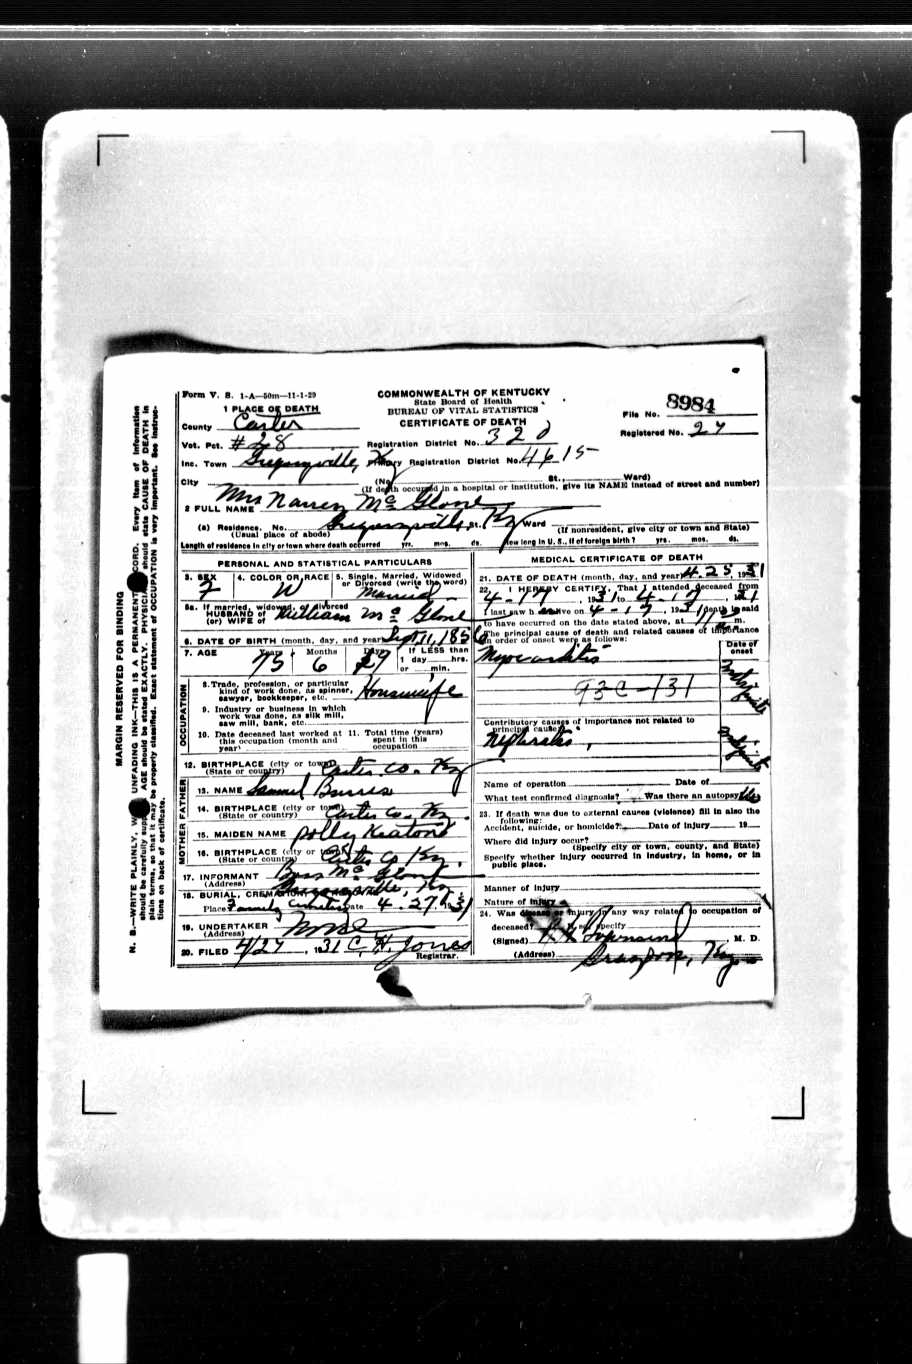 Form V. S. 1-A—50m—11-1-29
COMMONWEALTH OF KENTUCKY
State Board of Health
BUREAU OF VITAL STATISTICS
CERTIFICATE OF DEATH
File No. 8984
Registered No. 27
1 PLACE OF DEATH
County Carter
Vot. Pct. #28
Registration District No. 320
Inc. Town Gregoryville, Ky
Primary Registration District No. 4615
City
(No. St., Ward)
(If death occurred in a hospital or institution, give its NAME instead of street and number)
2 FULL NAME Mrs Mc Glone
(a) Residence. No. Gregoryville, St. Ky Ward
(Usual place of abode)
(If nonresident, give city or town and State)
Length of residence in city or town where death occurred yrs. mos. ds. How long in U. S., if of foreign birth? yrs. mos. ds.
PERSONAL AND STATISTICAL PARTICULARS
3. SEX F
4. COLOR OR RACE W
5. Single, Married, Widowed or Divorced (write the word) Married
5a. If married, widowed, or divorced
HUSBAND of
(or) WIFE of William Mc Glone
6. DATE OF BIRTH (month, day, and year) Sept. 11, 1856
7. AGE Years Months Days If LESS than
1 day hrs.
or min.
75 6
OCCUPATION
8. Trade, profession, or particular
kind of work done, as spinner,
sawyer, bookkeeper, etc. Housewife
9. Industry or business in which
work was done, as silk mill,
saw mill, bank, etc.
10. Date deceased last worked at
this occupation (month and
year)
11. Total time (years)
spent in this
occupation
12. BIRTHPLACE (city or town) Carter Co. Ky
(State or country)
FATHER
13. NAME Samuel Burris
14. BIRTHPLACE (city or town) Carter Co, Ky.
(State or country)
MOTHER
15. MAIDEN NAME Polly Keaton
16. BIRTHPLACE (city or town) Carter Co Ky.
(State or country)
17. INFORMANT Mc Glone
(Address) Gregoryville, Ky
18. BURIAL, CREMATION, OR REMOVAL
Place Family Cemetery Date 4-27, 1931
19. UNDERTAKER None
(Address)
20. FILED 4/27, 1931 C. H. Jones
Registrar.
MEDICAL CERTIFICATE OF DEATH
21. DATE OF DEATH (month, day, and year) 4.25, 1931
22. I HEREBY CERTIFY, That I attended deceased from
4-17, 1931 to 4-17, 1931
I last saw h alive on 4-17, 1931, death is said
to have occurred on the date stated above, at 11 m.
The principal cause of death and related causes of importance
in order of onset were as follows:
Date of onset
Myocarditis
Indefinite
93C-131
Contributory causes of importance not related to
principal cause:
Nephritis,
Indefinite
Name of operation Date of
What test confirmed diagnosis? Was there an autopsy?
23. If death was due to external causes (violence) fill in also the
following:
Accident, suicide, or homicide? Date of injury 19
Where did injury occur?
(Specify city or town, county, and State)
Specify whether injury occurred in industry, in home, or in
public place.
Manner of injury
Nature of injury
24. Was disease or injury in any way related to occupation of
deceased? If so, specify
(Signed) Townsend, M. D.
(Address) Grayson, Ky
MARGIN RESERVED FOR BINDING
N. B.—WRITE PLAINLY, UNFADING INK—THIS IS A PERMANENT RECORD. Every item of information
should be carefully supplied. AGE should be stated EXACTLY. PHYSICIANS should state CAUSE OF DEATH in
plain terms, so that it may be properly classified. Exact statement of OCCUPATION is very important. See instruc-
tions on back of certificate.